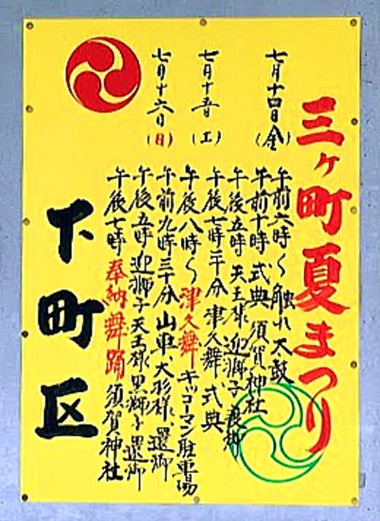 三ヶ町夏まつり
七月十四日(金)
午前六時〜触れ太鼓
午前十時 式典 須賀神社
午後五時 天王様、迎獅子 渡御
七月十五日(土)
午後七時三十分 津久舞 式典
午後八時〜津久舞 キッコーマン駐車場
七月十六日(日)
午前九時三十分 山車、大杉様、還御
午後五時 迎獅子 天王様 黒獅子 還御
午後七時 奉納舞踊 須賀神社
下町区